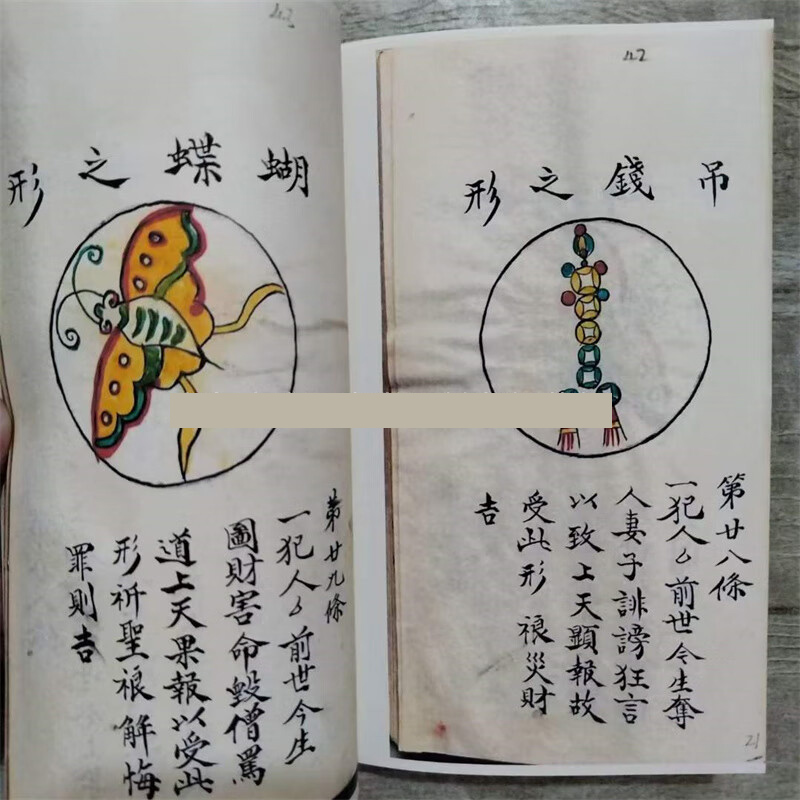 42
吊錢之形
第廿八條
一犯人厶前世今生奪
人妻子誹謗狂言
以致上天顯報故
受此形 禳災財
吉
21
43
蝴蝶之形
第廿九條
一犯人厶前世今生
圖財害命毀僧罵
道上天果報以受此
形祈聖禳解悔
罪則吉